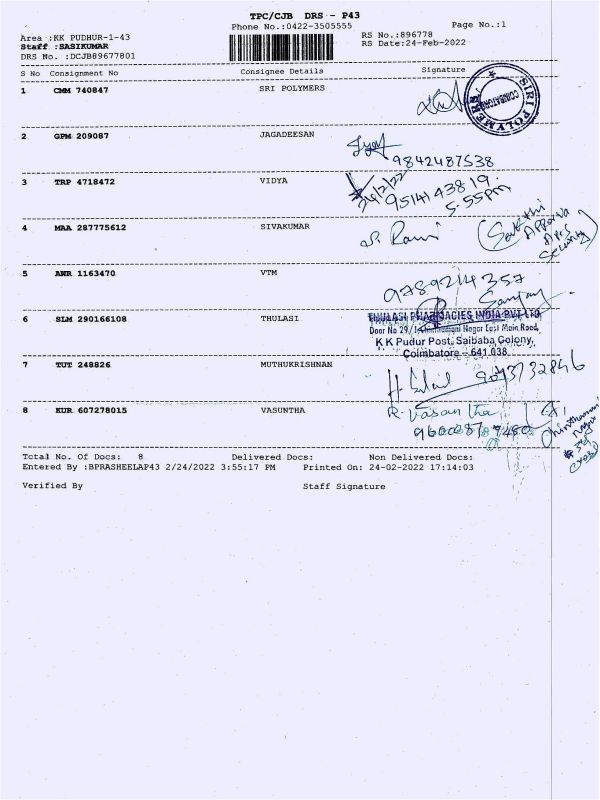 TPC/CJB DRS - P43
Phone No.:0422-3505555
Page No.:1
Area :KK PUDHUR-1-43
RS No.:896778
Staff :SASIKUMAR
RS Date:24-Feb-2022
DRS No. :DCJB89677801
S No Consignment No Consignee Details Signature
1 CMM 740847 SRI POLYMERS
SIRI POLYMERS
COIMBATORE
2 GPM 209087 JAGADEESAN
9842487538
3 TRP 4718472 VIDYA
24/2/22
9514143819.
5:55pm
4 MAA 287775612 SIVAKUMAR
S. Rami
(Sakthi
Apporva
Apts
Security)
5 AWR 1163470 VTM
9789214357
Sanjay
6 SLM 290166108 THULASI
THULASI PHARMACIES INDIA PVT LTD
Door No 29/1, Nagar East Main Road,
K K Pudur Post, Saibaba Colony,
Coimbatore - 641 038
7 TUT 248826 MUTHUKRISHNAN
8 KUR 607278015 VASUNTHA
R. Vasantha
Total No. Of Docs: 8 Delivered Docs: Non Delivered Docs:
Entered By :BPRASHEELAP43 2/24/2022 3:55:17 PM Printed On: 24-02-2022 17:14:03
Verified By Staff Signature